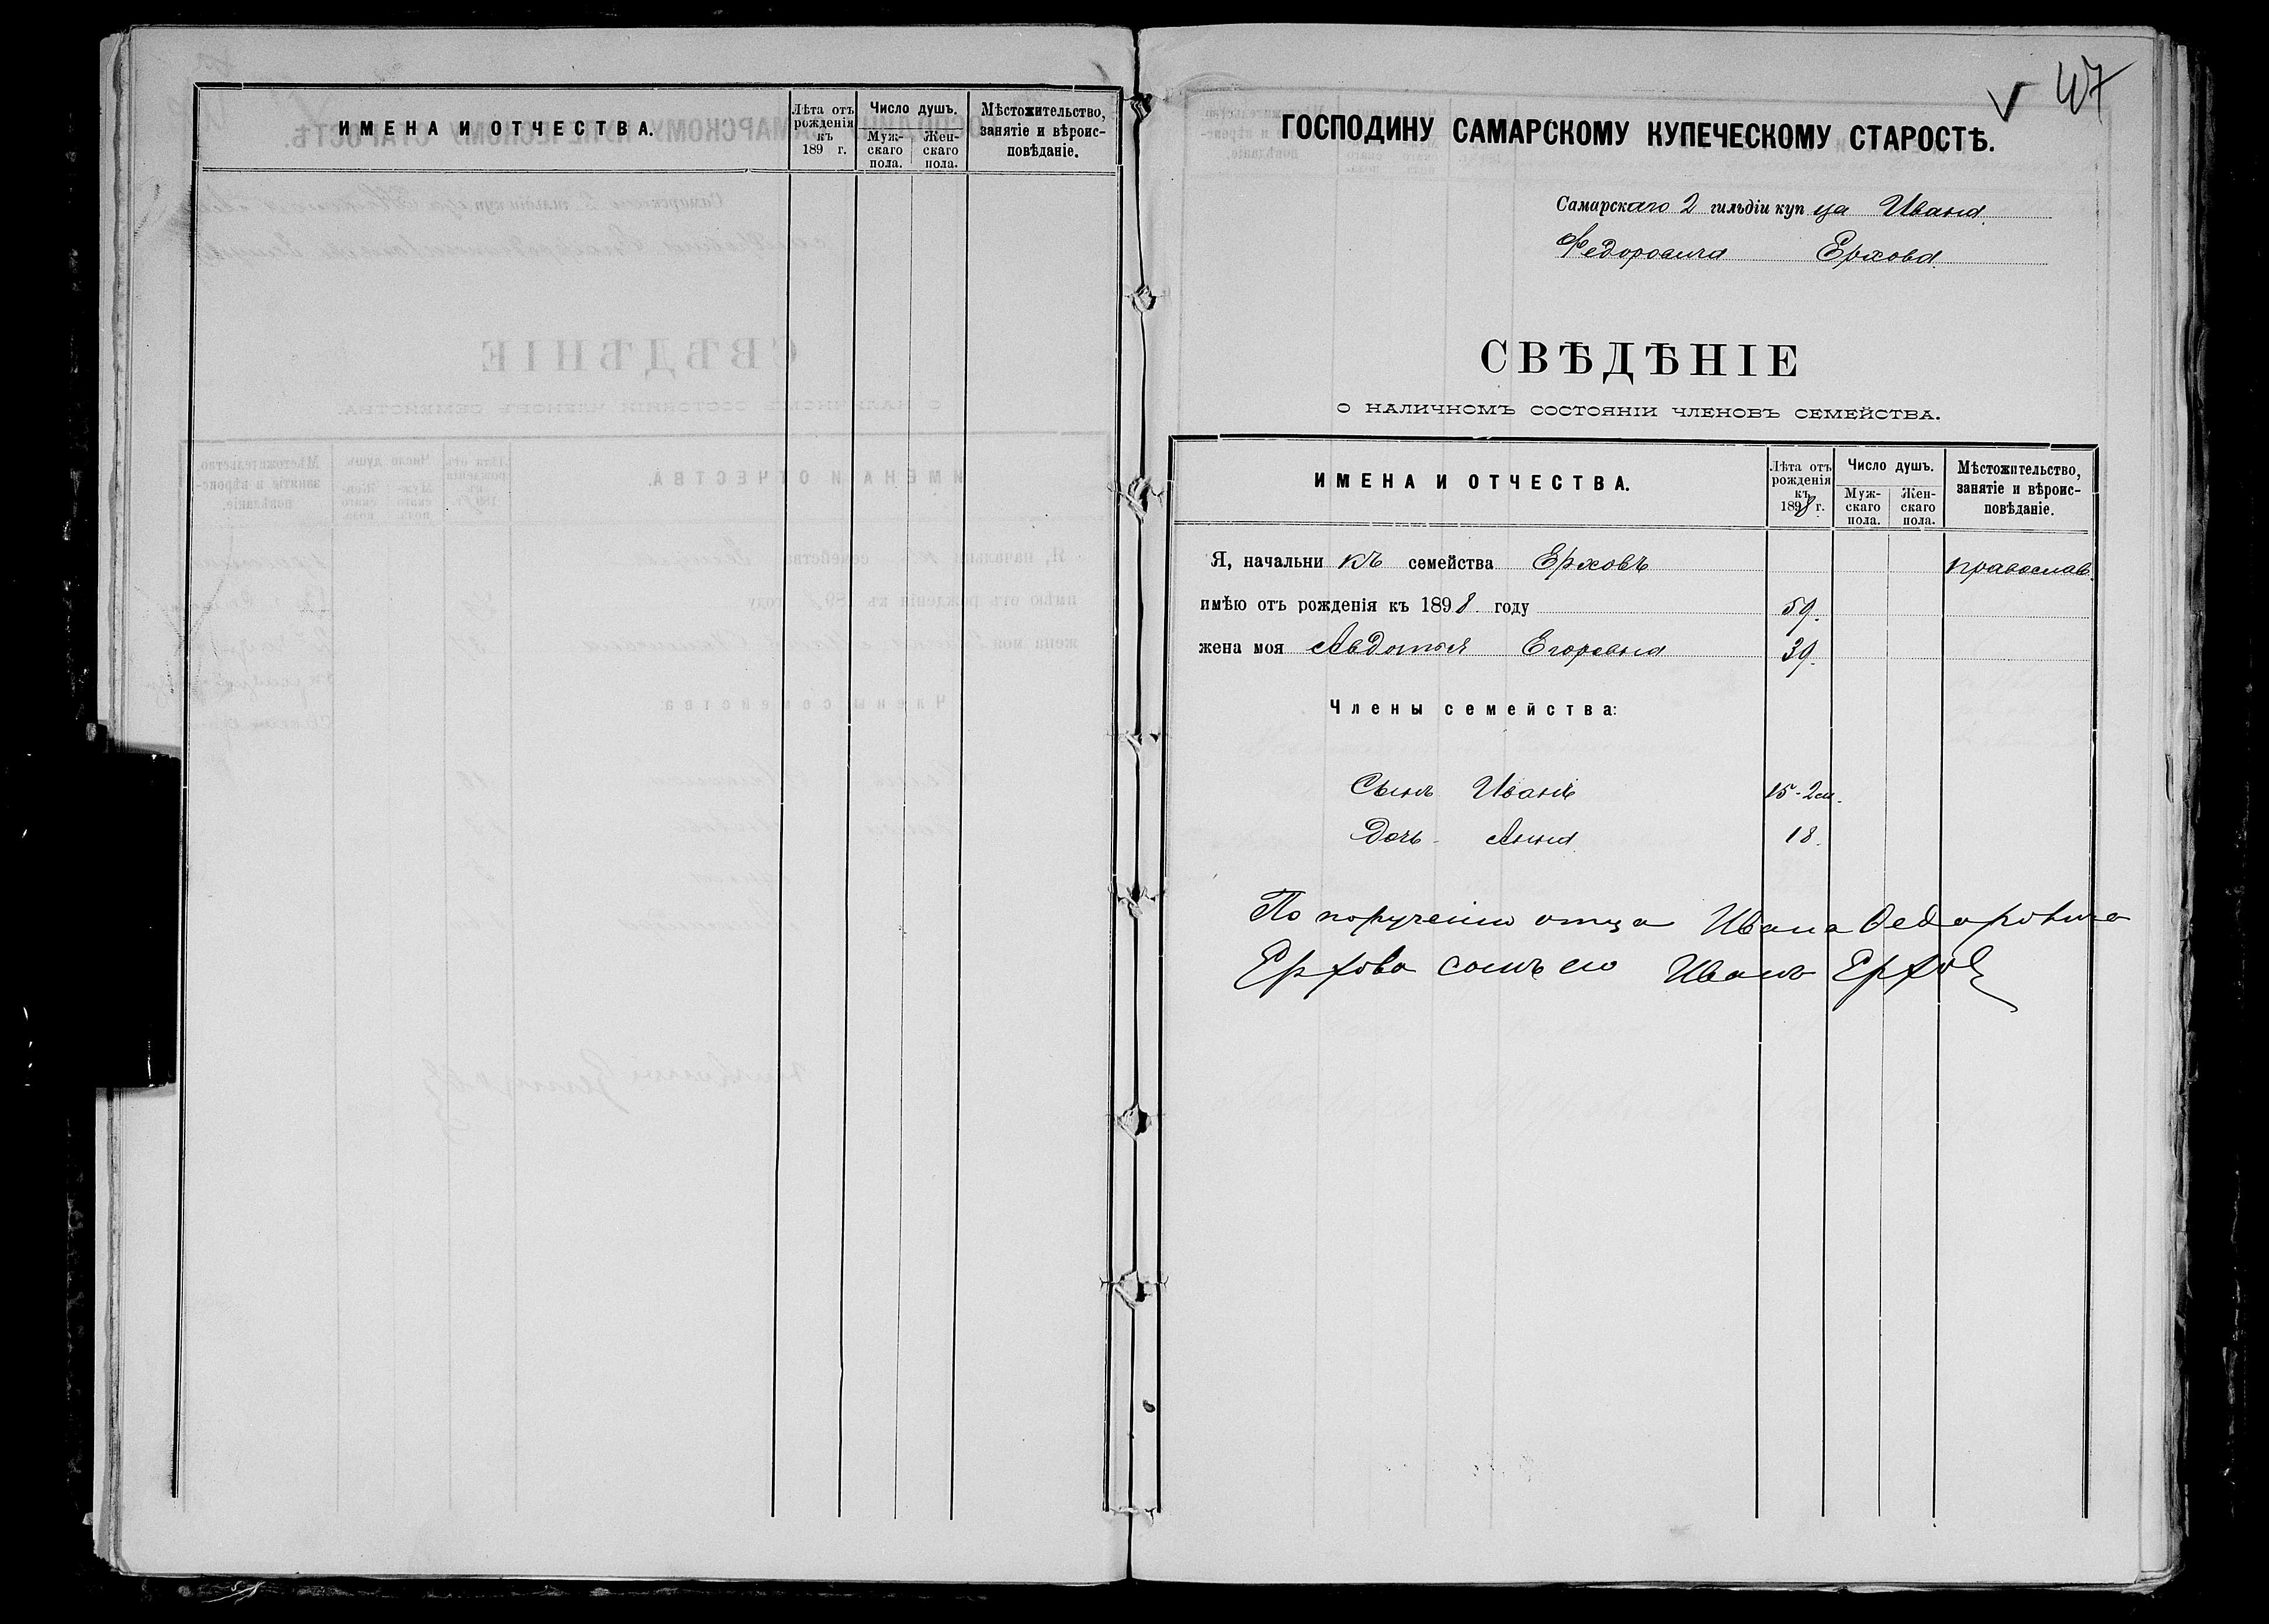 ИМЕНА И ОТЧЕСТВА.
Лѣта отъ рожденія къ 189 г.
Число душъ.
Муж-скаго пола.
Жен-скаго пола.
Мѣстожительство, занятіе и вѣроис-повѣданіе.
ГОСПОДИНУ САМАРСКОМУ КУПЕЧЕСКОМУ СТАРОСТѢ.
Самарскаго 2 гильдіи купца Ивана
Федоровича Ерхова
СВѢДѢНІЕ
О НАЛИЧНОМЪ СОСТОЯНІИ ЧЛЕНОВЪ СЕМЕЙСТВА.
ИМЕНА И ОТЧЕСТВА.
Лѣта отъ рожденія къ 1898 г.
Число душъ.
Муж-скаго пола.
Жен-скаго пола.
Мѣстожительство, занятіе и вѣроис-повѣданіе.
Я, начальникъ семейства Ерховъ православ.
имѣю отъ рожденія къ 1898 году 59.
жена моя Авдотья Егоровна 39.
Члены семейства:
Сынъ Иванъ 15-2м.
Дочь - Анна 18.
По порученію отца Ивана Федоровича
Ерхова сынъ его Иванъ Ерховъ